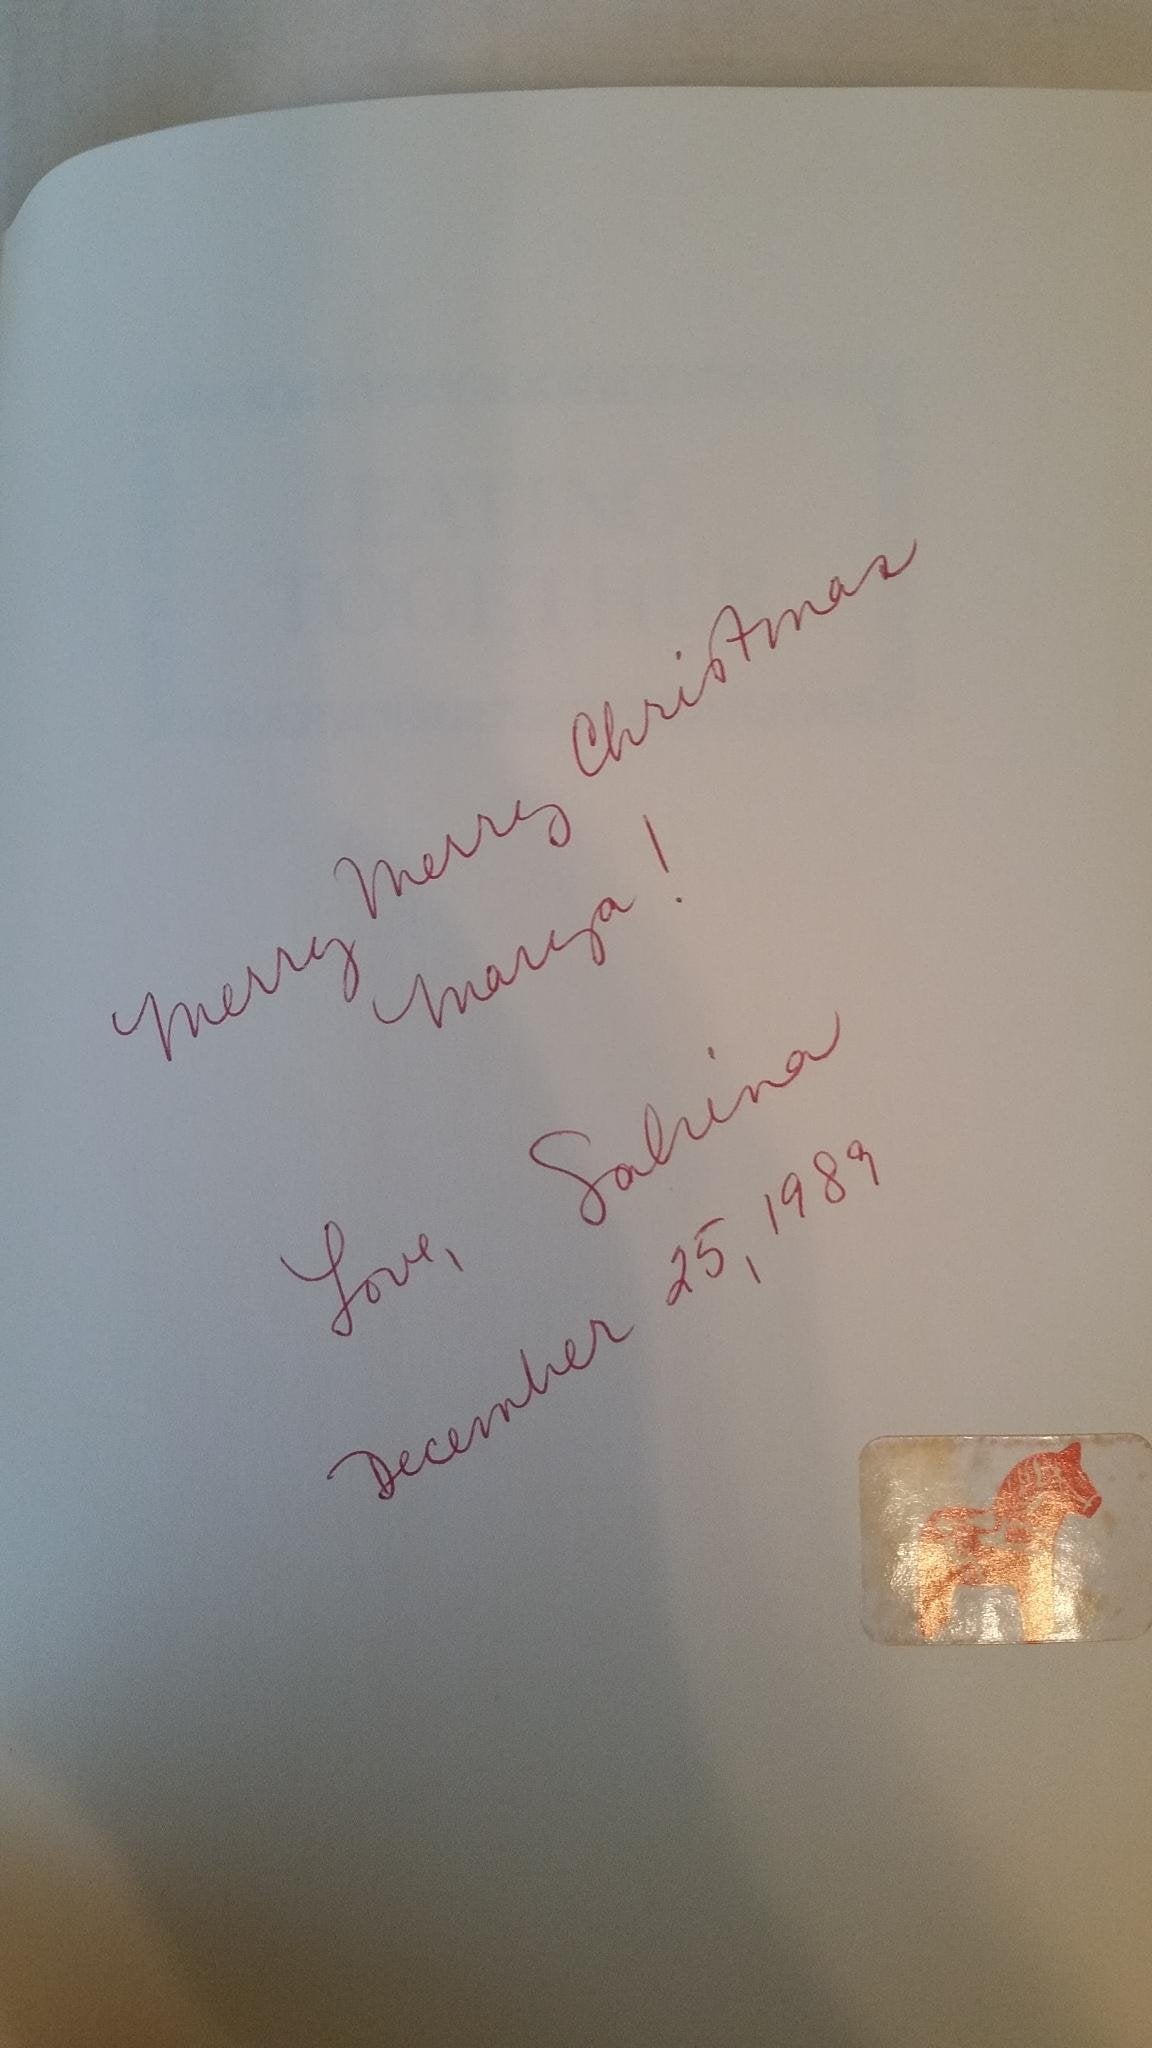 Merry Merry Christmas
Marya!
Love, Sabrina
December 25, 1989